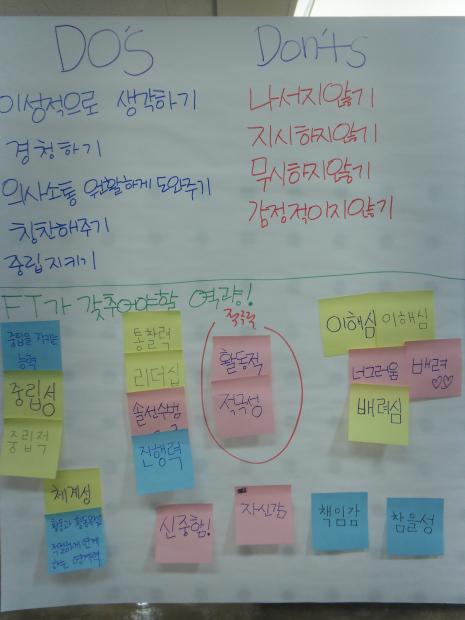 DO'S
Don'ts
이성적으로 생각하기
경청하기
의사소통 원활하게 도와주기
칭찬해주기
중립지키기
나서지않기
지시하지않기
무시하지않기
감정적이지않기
FT가 갖추어야할 역량!
중립을 지키는
능력
중립성
중립적
통찰력
리더십
솔선수범
진행력
적극력
활동적
적극성
이해심
이해심
너그러움
배려♡♡
배려심
체계성
활동과 활동을
하는 연계력
신중함!
자신감
책임감
참을성